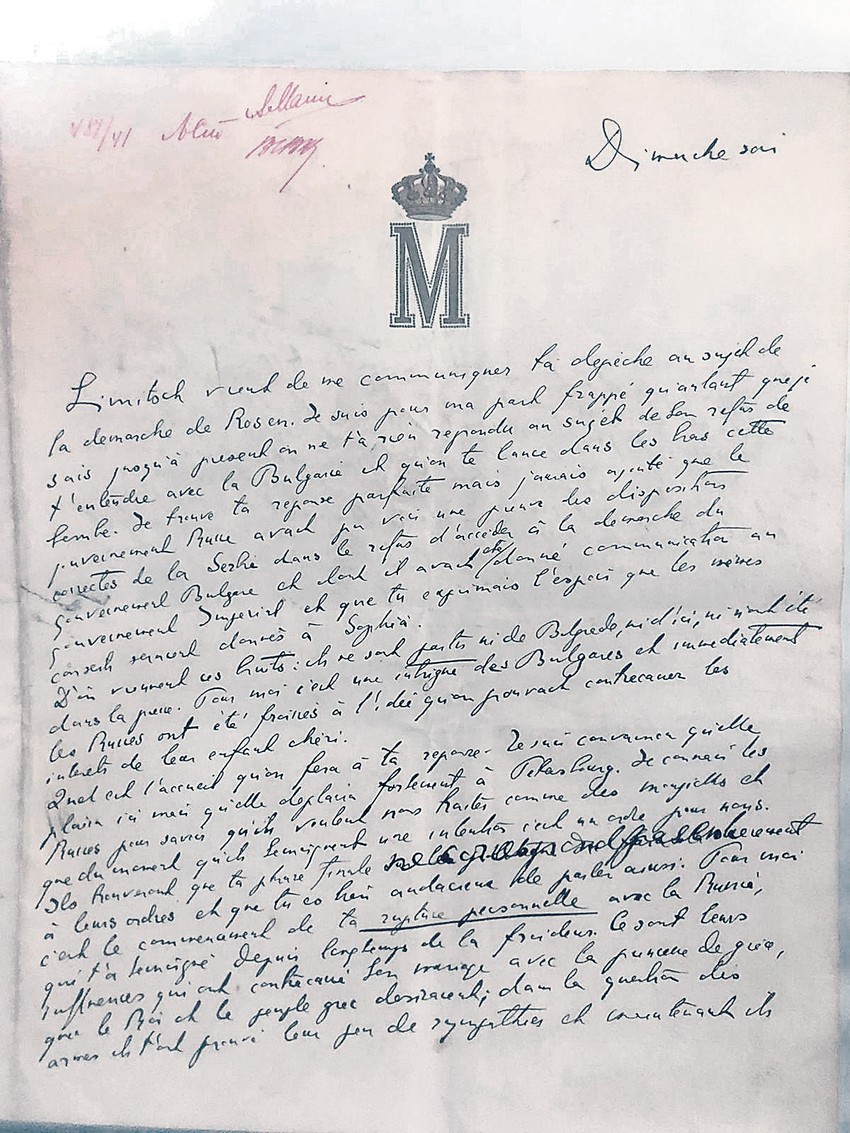 Dimanche soir
M
vient de me communiquer ta depêche au sujet de
la demarche de Rosen. Je suis pour ma part frappé qu'autant que je
sais jusqu'à present on ne t'a rien repondu au sujet de son refus de
t'entendre avec la Bulgarie et qu'on te lance dans les bras cette
bombe. Je trouve ta reponse parfaite mais jamais ajouté que le
gouvernement Russe avait pu voir une preuve des dispositions
correctes de la Serbie dans le refus d'acceder à la demarche du
gouvernement Bulgare et dont il avait été donné communication au
gouvernement Imperial et que tu exprimais l'espoir que les mêmes
conseils seraient donnés à Sophia.
D'où viennent ces bruits: ils ne sont partis ni de Belgrade, ni d'ici, ni n'ont été
dans la presse. Pour moi c'est une intrigue des Bulgares et immediatement
les Russes ont été froissés à l'idée qu'on pouvait contrecarrer les
interets de leur enfant chéri.
Quel est l'accueil qu'on fera à ta reponse. Je suis convaincu qu'elle
plaira ici mais qu'elle deplaira fortement à Petersburg. Je connais les
Russes pour savoir qu'ils veulent nous traiter comme des moujicks et
que du moment qu'ils temoignent une intention c'est un ordre pour nous.
Ils trouveront que ta phrase finale
à leurs ordres et que tu es bien audacieux de parler ainsi. Pour moi
c'est le commencement de ta rupture personnelle avec la Russie,
qui t'a temoigné depuis longtemps de la froideur. Ce sont leurs
influences qui ont contrecarré ton mariage avec la princesse de grèce,
que le Roi et le peuple grec desiraient; dans la question des
armes ils t'ont prouvé leur peu de sympathies et maintenant ils